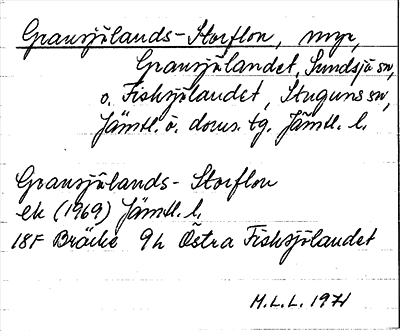 Gransjölands-Storflon, myr,
Gransjölandet, Sundsjö sn,
o. Fisksjölandet, Stuguns sn,
Jämtl. ö. doms. tg. Jämtl. l.
Gransjölands-Storflon
ek (1969) Jämtl. l.
18F Bräcke 9h Östra Fisksjölandet
M.L.L. 1971